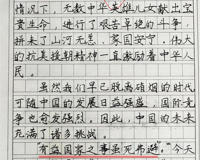 情况下，无数中华英雄儿女献出宝
贵生命，进行了艰苦卓绝的斗争，
拼来了山河无恙，家国安宁，伟大
的抗美援朝精神一直激励着中华人
民。
虽然我们早已脱离硝烟的时代
可随中国的发展日益强盛，国际竞
争也愈发强烈，因此，中国的未来
充满了诸多挑战。
"有益国家之事虽死弗避。"今天